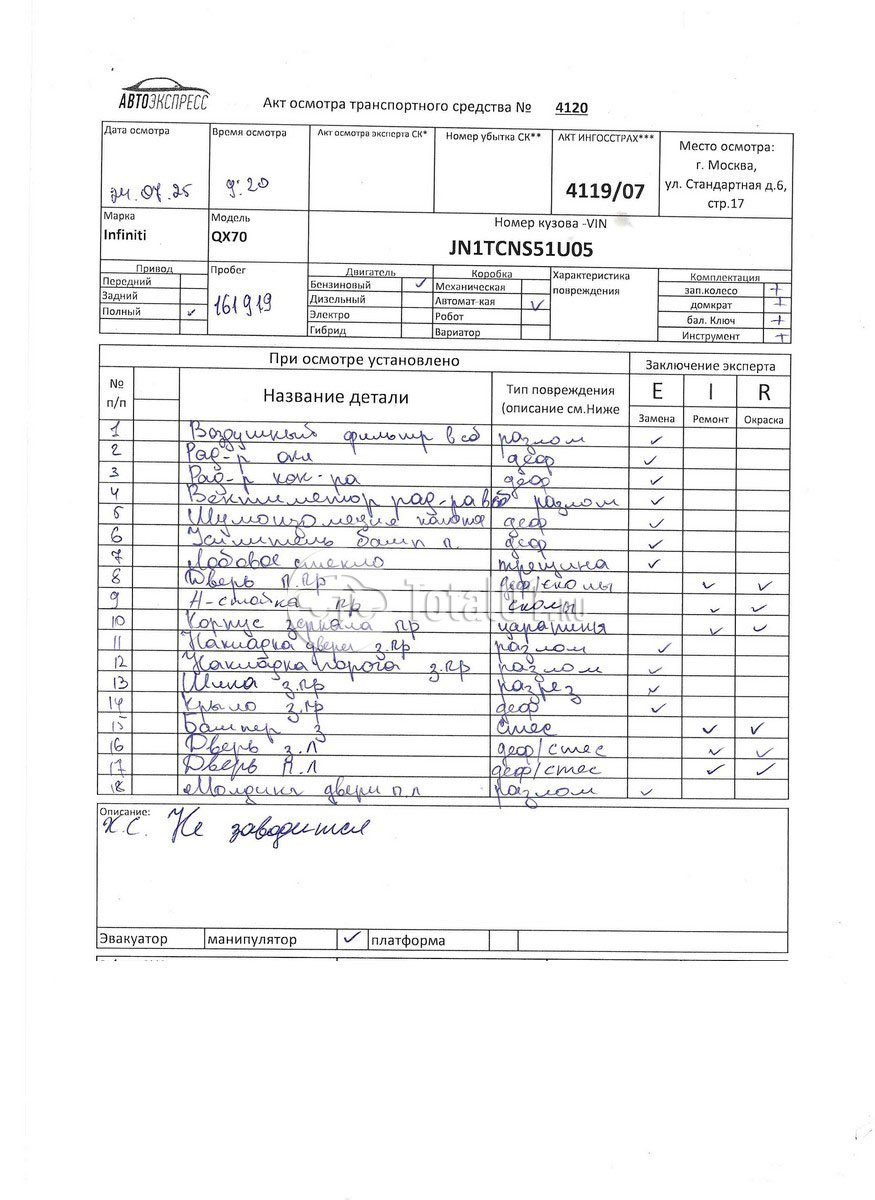 АВТОЭКСПРЕСС
Акт осмотра транспортного средства № 4120
Дата осмотра Время осмотра Акт осмотра эксперта СК* Номер убытка СК** АКТ ИНГОССТРАХ*** Место осмотра:
г. Москва,
24.07.25 9:20 4119/07 ул. Стандартная д.6,
стр.17
Марка Модель Номер кузова -VIN
Infiniti QX70 JN1TCNS51U05
Привод Пробег Двигатель Коробка Характеристика Комплектация
Передний Бензиновый ✓ Механическая повреждения зап.колесо +
Задний 161919 Дизельный Автомат-кая ✓ домкрат +
Полный ✓ Электро Робот бал. Ключ +
Гибрид Вариатор Инструмент +
При осмотре установлено Заключение эксперта
№ п/п Название детали Тип повреждения (описание см.Ниже E I R
Замена Ремонт Окраска
1 Воздушный фильтр в сб разлом ✓
2 Рад-р охл деф ✓
3 Рад-р кон-ра деф ✓
4 рад-ра разлом ✓
5 деф ✓
6 Усилитель бамп п. деф ✓
7 Лобовое стекло трещина ✓
8 Дверь п.пр деф/сколы ✓ ✓
9 А-стойка пр сколы ✓ ✓
10 Корпус зеркала пр царапина ✓ ✓
11 Накладка двери з.пр разлом ✓
12 Накладка порога з.пр разлом ✓
13 Шина з.пр разрез ✓
14 Крыло з.пр деф ✓
15 Бампер з стес ✓ ✓
16 Дверь з.л деф/стес ✓ ✓
17 Дверь п.л деф/стес ✓ ✓
18 двери п.л разлом ✓
Описание:
Х.С. Не заводится
Эвакуатор манипулятор ✓ платформа
TotalOff.RU